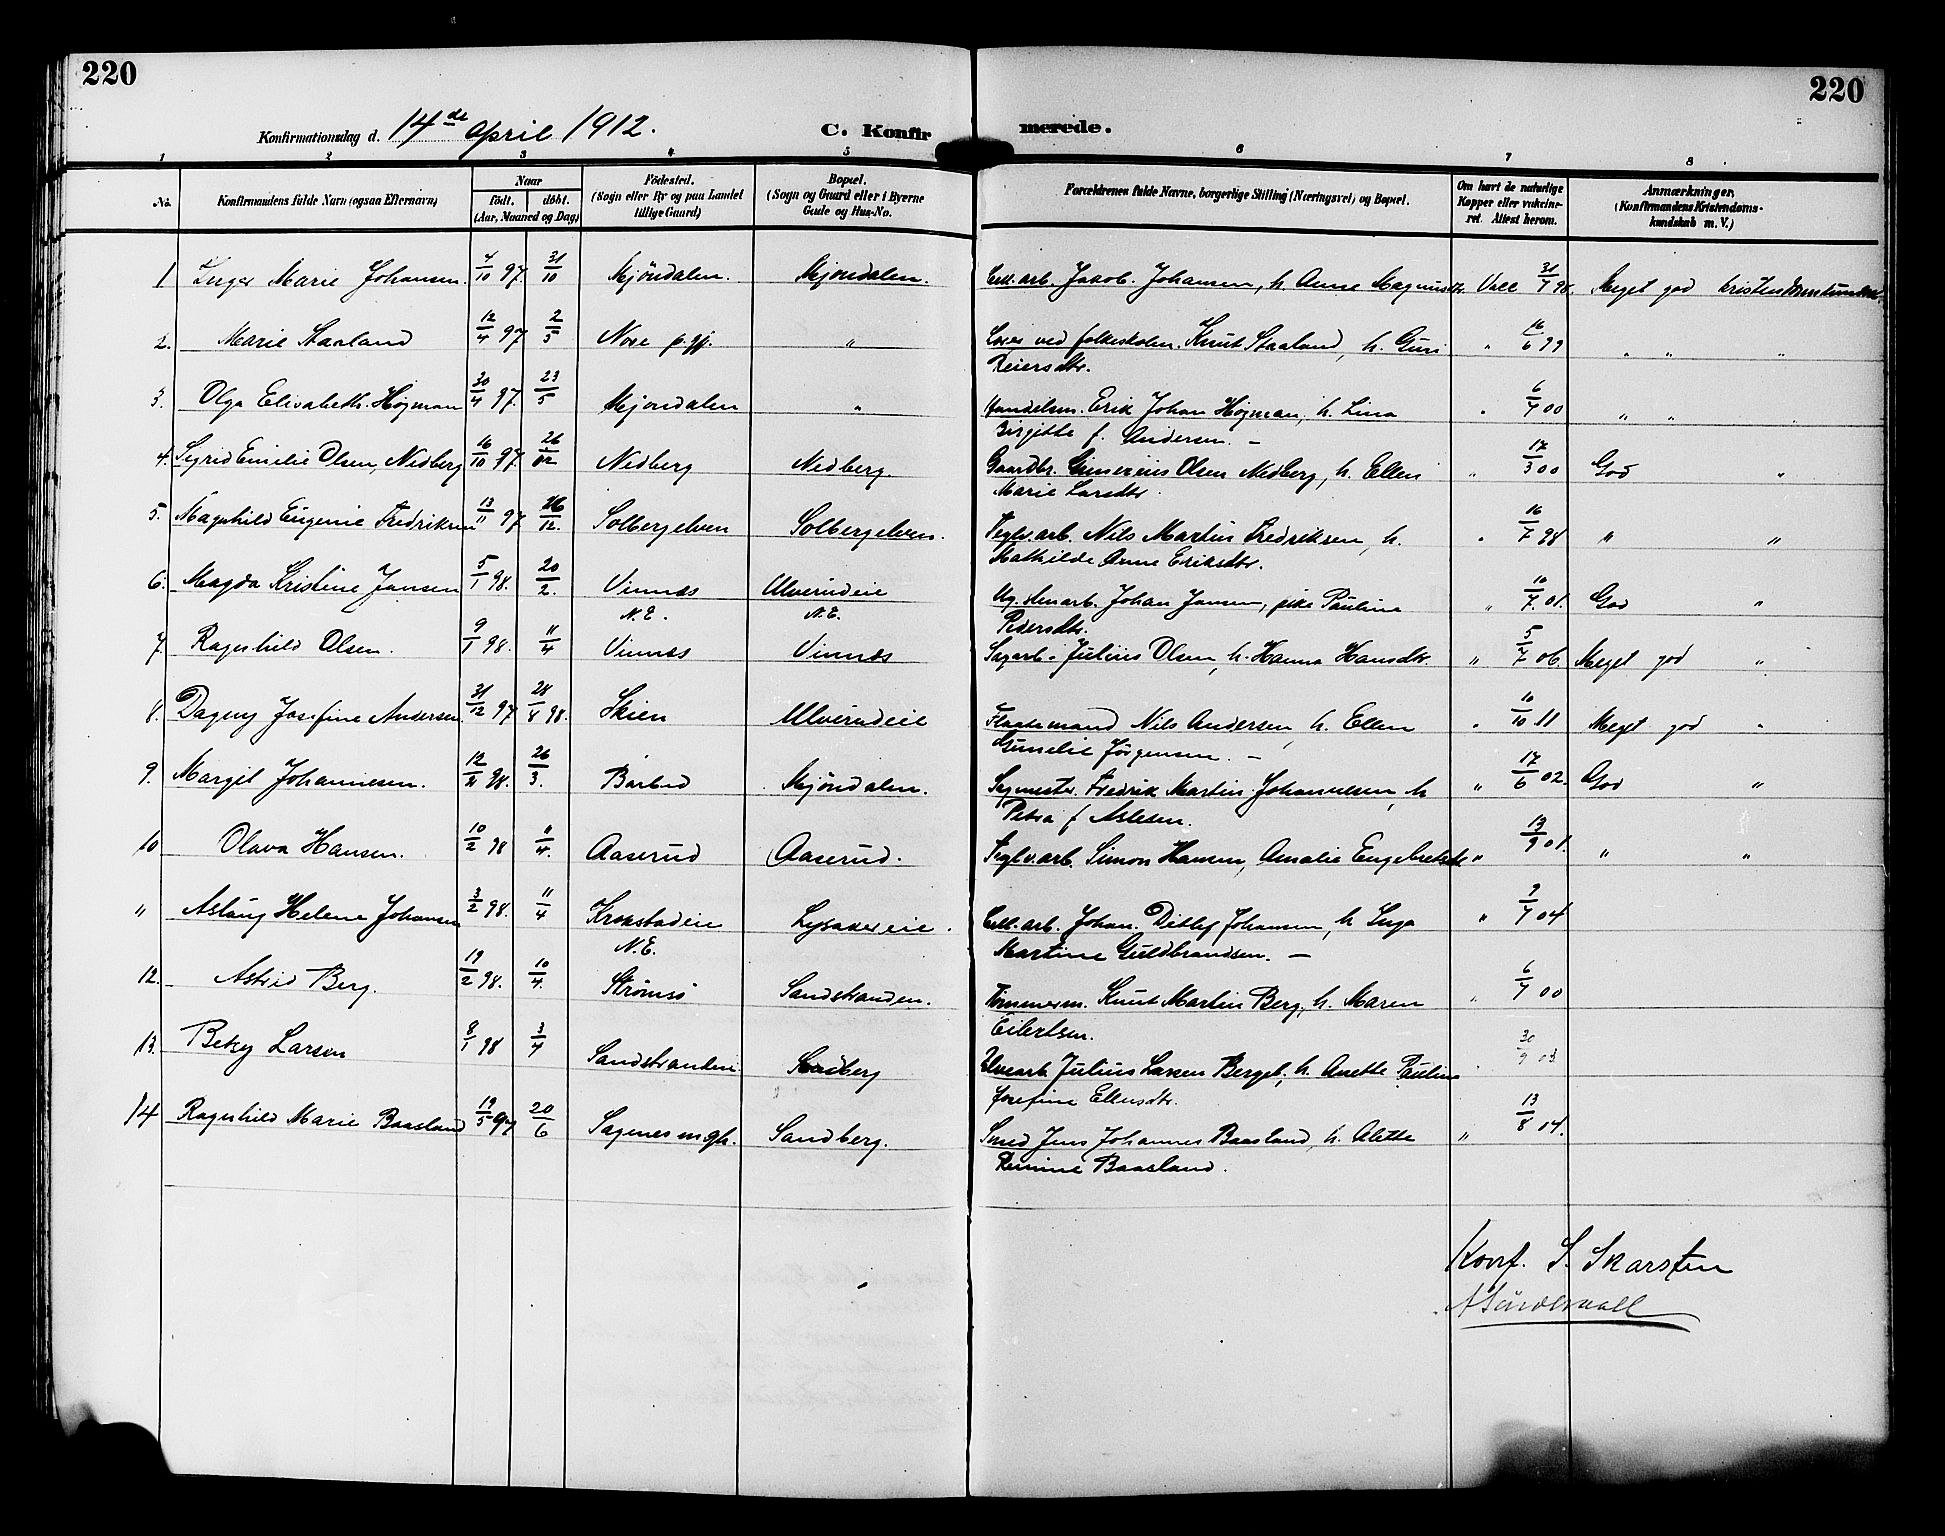 220
220
Konfirmationsdag d. 14de April 1912. C. Konfirmerede.
1 2 3 4 5 6 7 8
No. Konfirmandens fulde Navn (ogsaa Efternavn) Naar født. døbt. (Aar, Maaned og Dag) Fødested. (Sogn eller By og paa Landet tillige Gaard) Bopæl. (Sogn og Gaard eller i Byerne Gade og Hus-No. Forældrenes fulde Navne, borgerlige Stilling (Næringsvei) og Bopæl. Om havt de naturlige Kopper eller vaksineret. Attest herom. Anmærkninger. (Konfirmandens Kristendomskundskab m. V.)
1 Inger Marie Johansen. 4/10 97. 31/10 Mjöndalen. Mjöndalen. Cell. arb. Jakob Johansen, h. Anne Magnusdtr. Vacc 31/7 98. Meget god kristendomskundsk.
2. Marie Staaland 12/4 97 2/5 Nore pgj. " Lærer ved folkeskolen Knut Staaland, h. Guri " 16/6 99 " " "
Reiersdtr.
3. Olga Elisabeth Högman 30/4 97. 23/5 Mjöndalen " Handelsm. Erik Johan Högman, h. Lina " 6/7 00 " " "
Birgitte f. Andersen. —
4. Sigrid Emilie Olsen, Nedberg 16/10 97. 26/12 Nedberg Nedberg. Gaardbr. Olsen Nedberg, h. Ellen " 17/3 00 God "
Marie Larsdtr.
5. Magnhild Eugenie Fredriksen 13/11 97 26/12. Solbergelven Solbergelven. Teglv. arb. Nils Martin Fredriksen, h. " 16/7 98 " "
Mathilde Anne Eriksdtr.
6. Magda Kristine Jansen 5/1 98. 20/2. Vinnæs Ulverudeie Ug. arb. Johan Jansen, pike Pauline " 10/7 01. God "
N. E. N. E. Pedersdtr.
7. Ragnhild Olsen. 9/1 98. 11/4 Vinnæs Vinnæs Sagarb. Julius Olsen, h. Hanna Hansdtr. " 5/7 06. Meget god "
8. Dagny Josefine Andersen. 31/12 97 28/8 98. Skien Ulverudeie Flaatemand Nils Andersen, h. Ellen " 10/10 11 Meget god "
Gunelie Jørgensen. —
9. Margit Johannesen. 12/2 98. 26/3. Barbud Mjöndalen. Sagmester Fredrik Martin Johannesen, h " 17/6 02. God "
Petra f Aslesen.
10 Olava Hansen. 10/2 98 11/4. Aaserud Aaserud. Teglv. arb. Simon Hansen, Amalie Engebretsdtr " 13/9 01. " "
" Aslaug Helene Johansen 3/2 98. 11/4 Krokstadeie Lysakereie. Cell. arb. Johan Ditlef Johansen, h Inga " 9/7 04
N. E. Martine Guldbrandsen. —
12. Astrid Berg. 19/2 98. 10/4. Strømsø Sandstranden. Tømmerm. Knut Martin Berg, h. Maren " 6/7 00
Eilertsen.
13. Betsy Larsen 8/1 98 3/4 Sandstranden Sandberg Julius Larsen Berget, h. Anette Pauline 30/9 03
Josefine Ellensdtr.
14 Ragnhild Marie Baasland 19/5 97 20/6 Sagenes mgh. Sandberg. Smed Jens Johannes Baasland, h. Alette " 13/8 04.
Baasland.
Konf. S. Skarsten